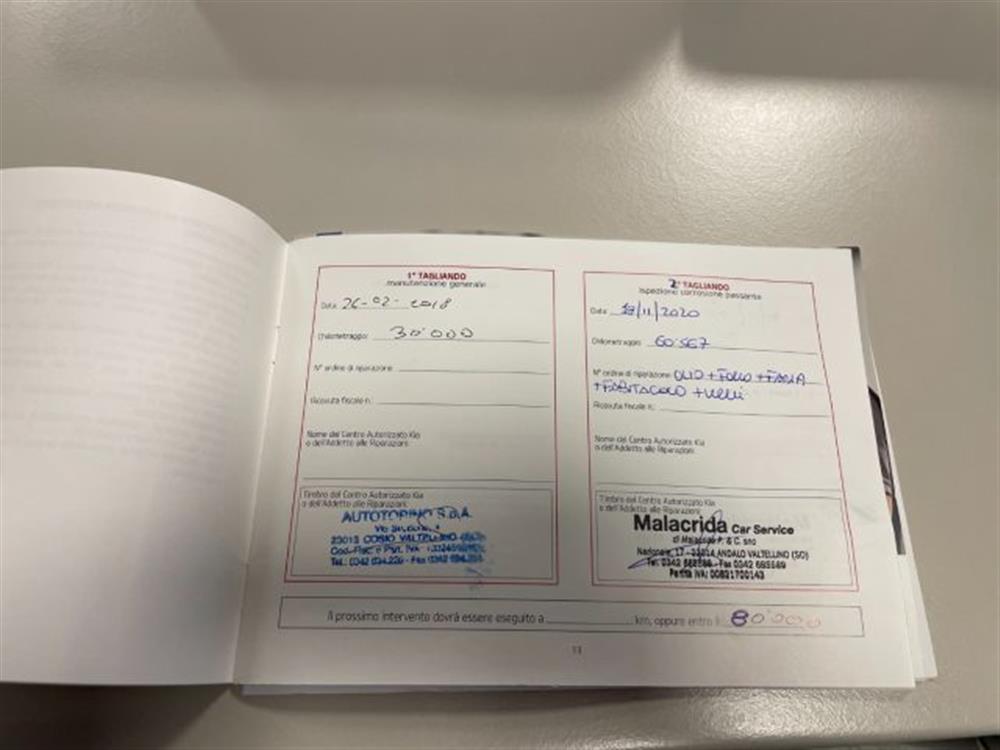 1° TAGLIANDO
manutenzione generale
Data 26-02-2018
Chilometraggio 30'000
N° ordine di riparazione
Ricevuta fiscale n.
Nome del Centro Autorizzato Kia
o dell'Addetto alle Riparazioni
Timbro del Centro Autorizzato Kia
o dell'Addetto alle Riparazioni
AUTOTORINO S.p.A.
23013 COSIO VALTELLINO
2° TAGLIANDO
ispezione corrosione passante
Data 18/11/2020
Chilometraggio 60'567
N° ordine di riparazione OLIO +
+ ABITACOLO +
Ricevuta fiscale n.
Nome del Centro Autorizzato Kia
o dell'Addetto alle Riparazioni
Timbro del Centro Autorizzato Kia
o dell'Addetto alle Riparazioni
Malacrida Car Service
di Malacrida P. & C. snc
Nazionale, 17 - 23014 ANDALO VALTELLINO (SO)
Partita IVA: 00821700143
Il prossimo intervento dovrà essere eseguito a km, oppure entro il 80'000
13